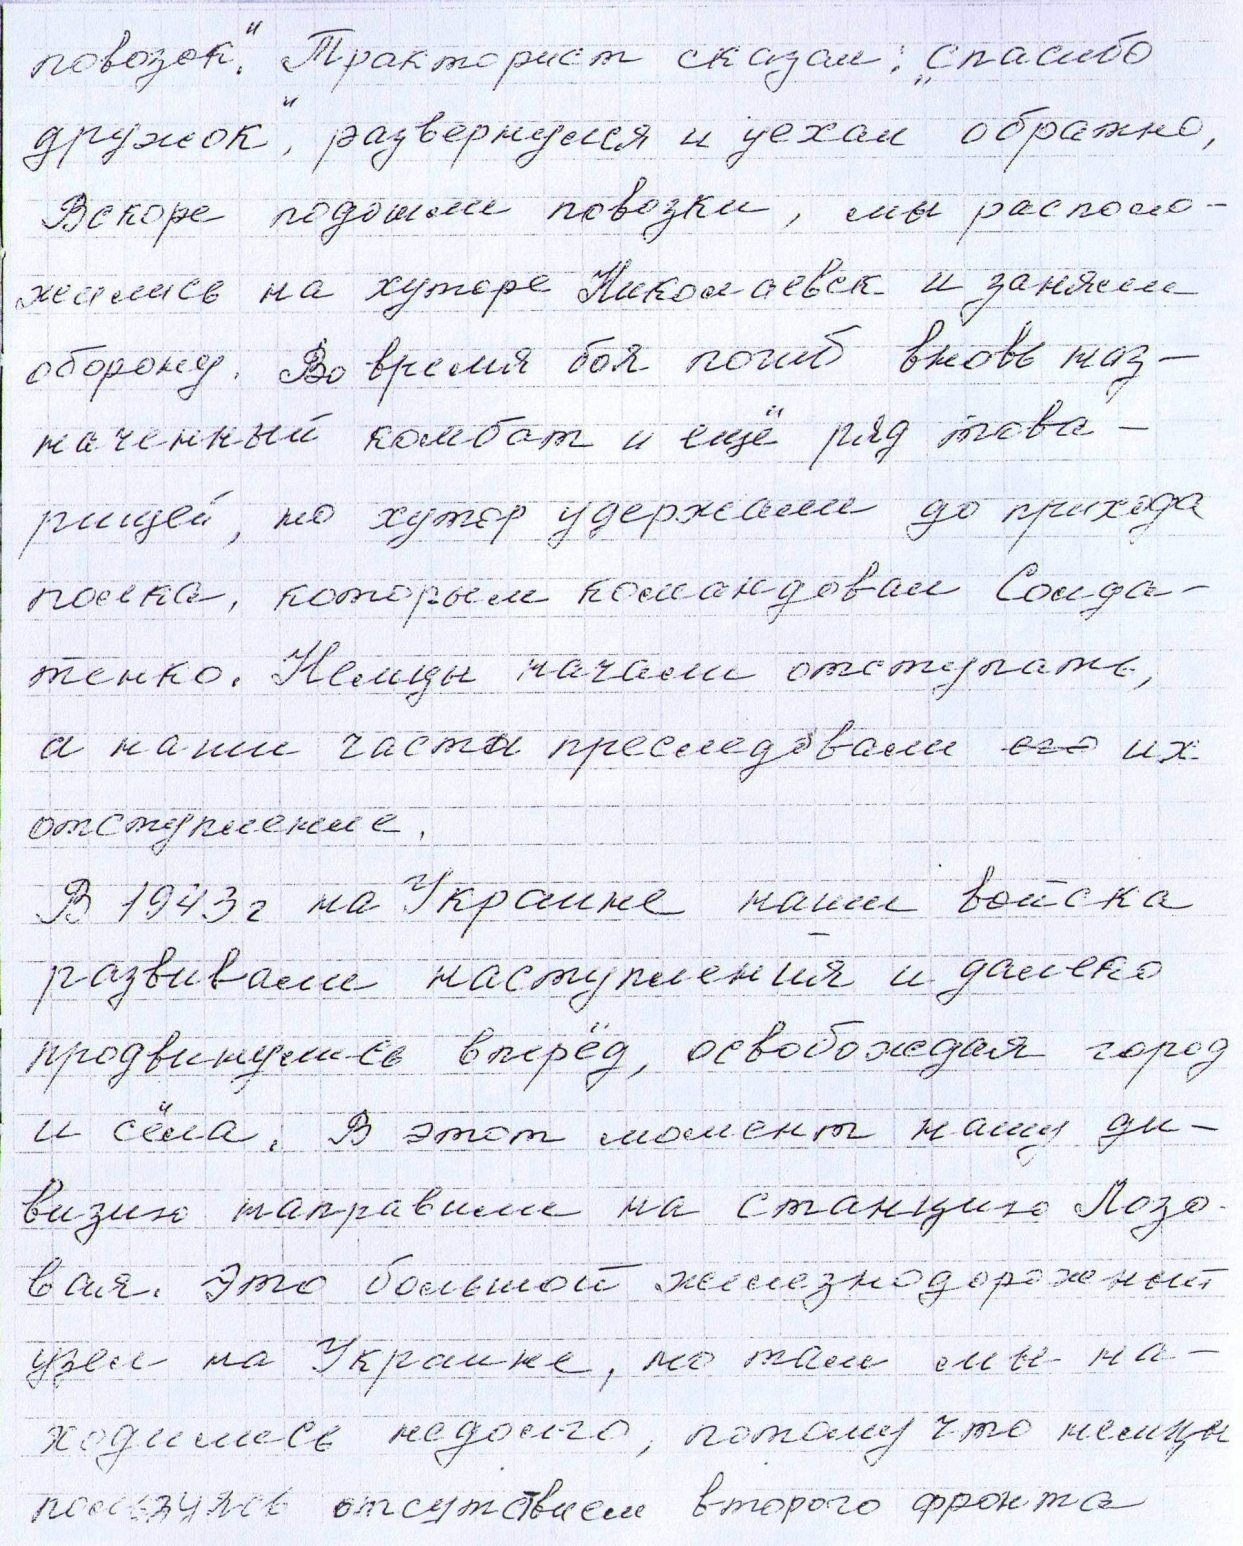 повозок". Тракторист сказал: „спасибо
дружок", развернулся и уехал обратно,
Вскоре подошли повозки, мы располо-
жились на хуторе Николаевск и заняли
оборону. Во время боя погиб вновь наз-
наченный комбат и ещё ряд това-
рищей, но хутор удержали до прихода
полка, которым командовал Солда-
тенко. Немцы начали отступать,
а наши части преследовали его их
отступление.
В 1943г на Украине наши войска
развивали наступления и далеко
продвинулись вперёд, освобождая город
и сёла. В этот момент нашу ди-
визию направили на станцию Лозо-
вая. Это большой железнодорожный
узел на Украине, но там мы на-
ходились недолго, потому что немцы
пользуясь отсутствием второго фронта